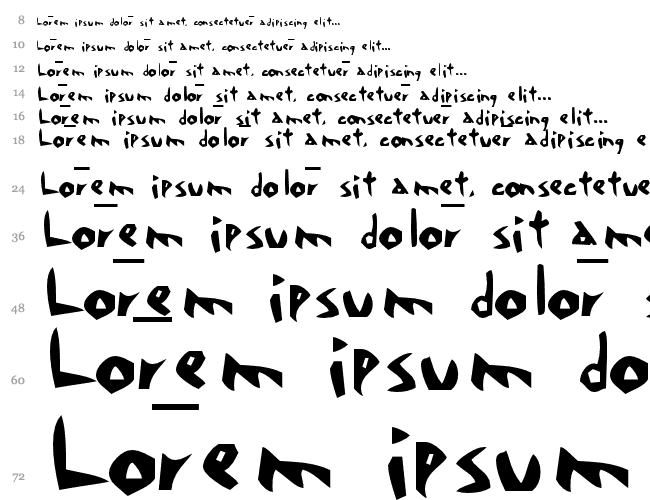 8 Lorem ipsum dolor sit amet, consectetuer adipiscing elit...
10 Lorem ipsum dolor sit amet, consectetuer adipiscing elit...
12 Lorem ipsum dolor sit amet, consectetuer adipiscing elit...
14 Lorem ipsum dolor sit amet, consectetuer adipiscing elit...
16 Lorem ipsum dolor sit amet, consectetuer adipiscing elit...
18 Lorem ipsum dolor sit amet, consectetuer adipiscing e
24 Lorem ipsum dolor sit amet, consectetue
36 Lorem ipsum dolor sit ame
48 Lorem ipsum dolor s
60 Lorem ipsum do
72 Lorem ipsum